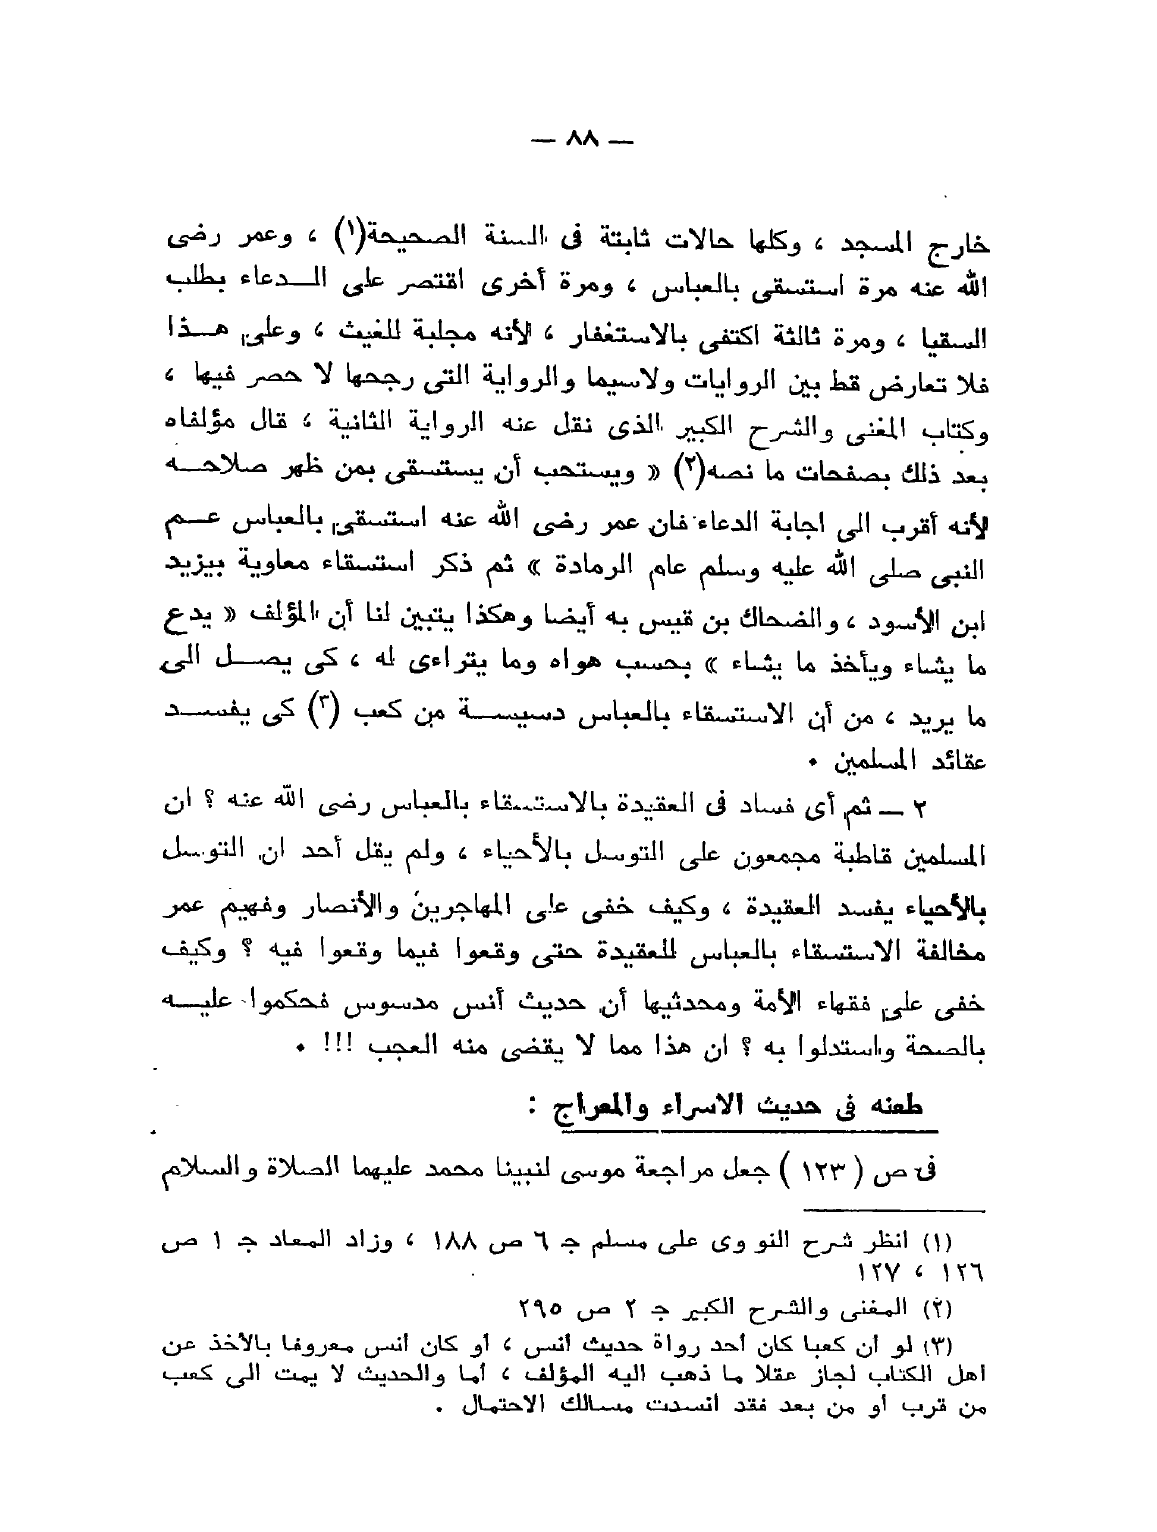 — ٨٨ —
خارج المسجد ، وكلها حالات ثابتة فى السنة الصحيحة(١) ، وعمر رضى
الله عنه مرة استسقى بالعباس ، ومرة أخرى اقتصر على الدعاء بطلب
السقيا ، ومرة ثالثة اكتفى بالاستغفار ، لأنه مجلبة للغيث ، وعلى هذا
فلا تعارض قط بين الروايات ولاسيما والرواية التى رجحها لا حصر فيها ،
وكتاب المغنى والشرح الكبير الذى نقل عنه الرواية الثانية ، قال مؤلفاه
بعد ذلك بصفحات ما نصه(٢) « ويستحب أن يستسقى بمن ظهر صلاحه
لأنه أقرب الى اجابة الدعاء فان عمر رضى الله عنه استسقى بالعباس عم
النبى صلى الله عليه وسلم عام الرمادة » ثم ذكر استسقاء معاوية بيزيد
ابن الأسود ، والضحاك بن قيس به أيضا وهكذا يتبين لنا أن المؤلف « يدع
ما يشاء ويأخذ ما يشاء » بحسب هواه وما يتراءى له ، كى يصل الى
ما يريد ، من أن الاستسقاء بالعباس دسيسة من كعب (٣) كى يفسد
عقائد المسلمين .
٢ — ثم أى فساد فى العقيدة بالاستسقاء بالعباس رضى الله عنه ؟ ان
المسلمين قاطبة مجمعون على التوسل بالأحياء ، ولم يقل أحد ان التوسل
بالأحياء يفسد العقيدة ، وكيف خفى على المهاجرين والأنصار وفهيم عمر
مخالفة الاستسقاء بالعباس للعقيدة حتى وقعوا فيما وقعوا فيه ؟ وكيف
خفى على فقهاء الأمة ومحدثيها أن حديث أنس مدسوس فحكموا عليه
بالصحة واستدلوا به ؟ ان هذا مما لا يقضى منه العجب !!! .
طعنه فى حديث الاسراء والمعراج :
فى ص ( ١٢٣ ) جعل مراجعة موسى لنبينا محمد عليهما الصلاة والسلام
(١) انظر شرح النووى على مسلم جـ ٦ ص ١٨٨ ، وزاد المعاد جـ ١ ص
١٢٦ ، ١٢٧
(٢) المغنى والشرح الكبير جـ ٢ ص ٢٩٥
(٣) لو أن كعبا كان أحد رواة حديث أنس ، أو كان أنس معروفا بالأخذ عن
أهل الكتاب لجاز عقلا ما ذهب اليه المؤلف ، أما والحديث لا يمت الى كعب
من قرب أو من بعد فقد انسدت مسالك الاحتمال .